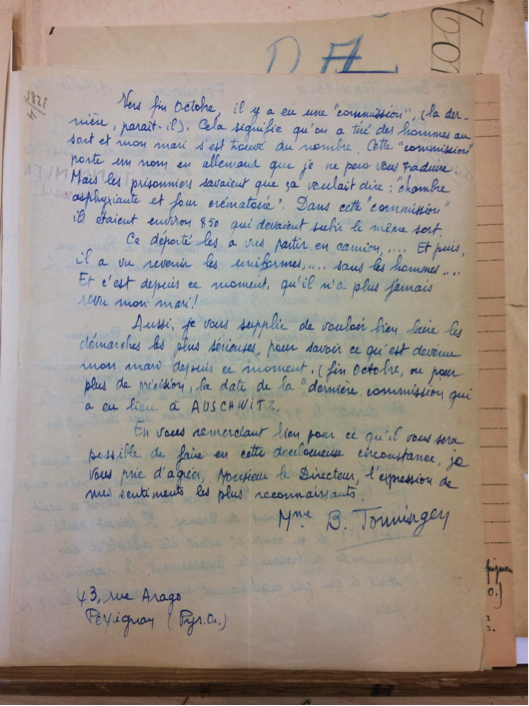 Vers fin Octobre, il y a eu une "commission", (la der-
nière, parait-il). Cela signifie qu'on a tiré des hommes au
sort et mon mari s'est trouvé du nombre. Cette "commission"
porte un nom en allemand que je ne peux vous traduire.
Mais les prisonniers savaient que ça voulait dire: "chambre
asphyxiante et four crématoire". Dans cette "commission"
ils étaient environ 850 qui devaient subir le même sort.
Ce déporté les a vus partir en camion,.... Et puis,
il a vu revenir les uniformes,.... sans les hommes....
Et c'est depuis ce moment, qu'il n'a plus jamais
revu mon mari!
Aussi, je vous supplie de vouloir bien faire les
démarches les plus sérieuses, pour savoir ce qu'est devenu
mon mari depuis ce moment. (fin Octobre, ou pour
plus de précision, la date de la "dernière commission qui
a eu lieu à AUSCHWITZ.
En vous remerciant bien pour ce qu'il vous sera
possible de faire en cette douloureuse circonstance, je
vous prie d'agréer, Monsieur le Directeur, l'expression de
mes sentiments les plus reconnaissants.
Mme B.
43, rue Arago
Perpignan (Pyr. Or.)